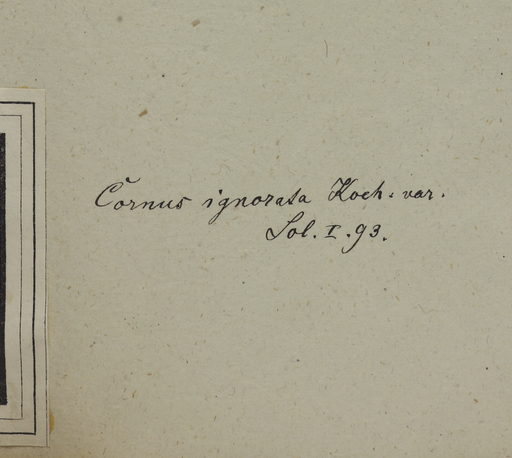 Cornus ignorata Koch. var.
Sol. I. 93.